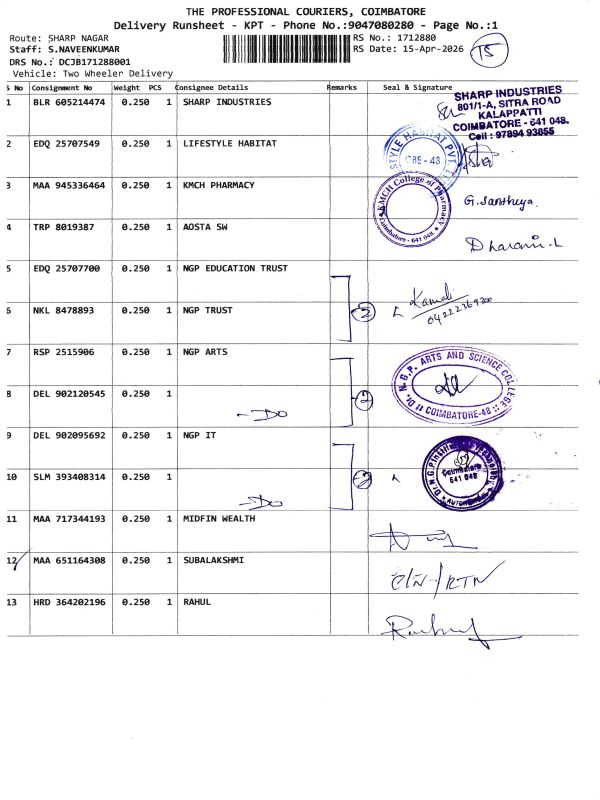 THE PROFESSIONAL COURIERS, COIMBATORE
Delivery Runsheet - KPT - Phone No.:9047080280 - Page No.:1
Route: SHARP NAGAR
RS No.: 1712880
Staff: S.NAVEENKUMAR
RS Date: 15-Apr-2026
15
DRS No.: DCJB171288001
Vehicle: Two Wheeler Delivery
S No Consignment No Weight PCS Consignee Details Remarks Seal & Signature
1 BLR 605214474 0.250 1 SHARP INDUSTRIES
SHARP INDUSTRIES
801/1-A, SITRA ROAD
KALAPPATTI
COIMBATORE - 641 048.
Cell : 97894 93855
2 EDQ 25707549 0.250 1 LIFESTYLE HABITAT
STYLE HABITAT PVT. LT
CBE - 48
3 MAA 945336464 0.250 1 KMCH PHARMACY
KMCH College of Pharmacy
Coimbatore - 641 048.
G. Santhiya.
4 TRP 8019387 0.250 1 AOSTA SW
Dharani. L
5 EDQ 25707700 0.250 1 NGP EDUCATION TRUST
6 NKL 8478893 0.250 1 NGP TRUST
2
Kamali
7 RSP 2515906 0.250 1 NGP ARTS
Dr. N.G.P. ARTS AND SCIENCE COLLEGE
COIMBATORE-48
8 DEL 902120545 0.250 1
- Do
2
9 DEL 902095692 0.250 1 NGP IT
Dr. N.G.P. Institute of Technology
Coimbatore
641 048
AUTONOMOUS
10 SLM 393408314 0.250 1
- Do
2
11 MAA 717344193 0.250 1 MIDFIN WEALTH
12 MAA 651164308 0.250 1 SUBALAKSHMI
C/N-/RTN
13 HRD 364202196 0.250 1 RAHUL
Rahul